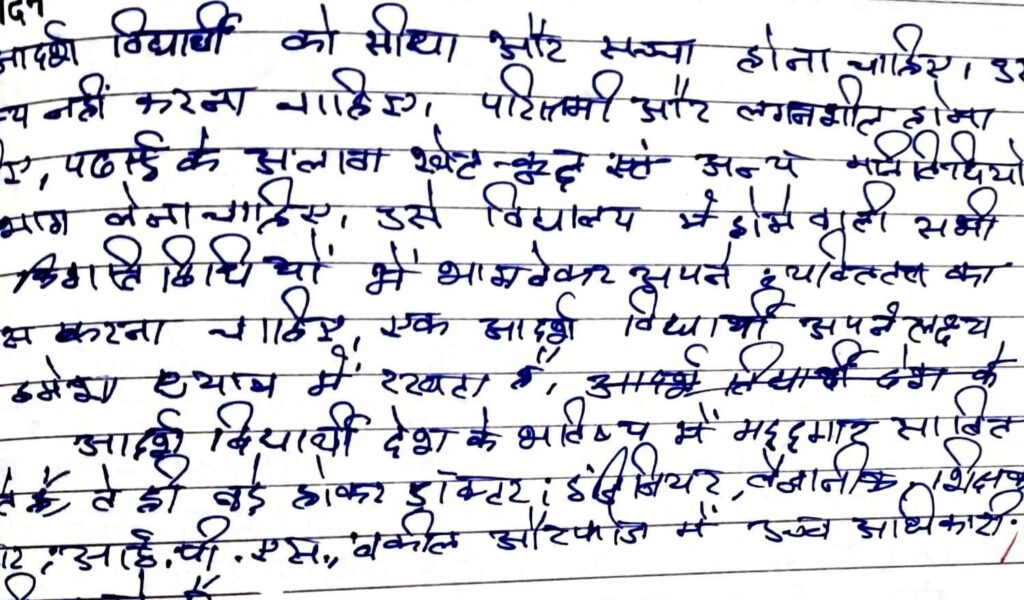 आदर्श विद्यार्थी को सीधा और सच्चा होना चाहिए। उस
नहीं करना चाहिए। परिश्रमी और लगनशील होना
पढाई के अलावा खेल-कूद एवं अन्य गतिविधियों
भाग लेना चाहिए। उसे विद्यालय में होने वाली सभी
गतिविधियों में भाग लेकर अपने व्यक्तित्व का
स करना चाहिए, एक आदर्श विद्यार्थी अपने लक्ष्य
हमेशा ध्यान में रखता है, आदर्श विद्यार्थी देश के
आदर्श विद्यार्थी देश के भविष्य में मद्दगार साबित
ते है, वे ही बड़े होकर डॉक्टर, इंजिनियर, वैज्ञानीक, शिक्षक
आई.पी.एस., वकील और फौज में उच्च अधिकारी